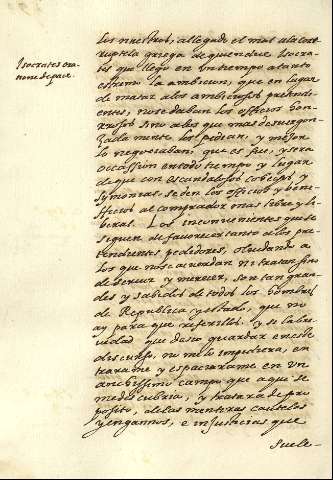 Isocrates ora-
tione de pace.
los nuestros, allegado el mal a la cor-
ruptela griega de quien dixe Isocra-
tes que llego en un tiempo a tanto
estremo la ambicion, que en lugar
de matar a los ambiciosos pretendi-
entes, no se daban los officios hon-
rrosos sino a los que mas desvergon-
zada mente los pedian, y mejor
lo negociaban, que es fue, y sera
occassion en todo tiempo y lugar
de que con escandalosos cohechos y
symonias se den los officios y bene-
fficios al comprador mas libre y li-
beral. Los inconvenientes que se
siguen de favorecer tanto a los pre-
tendientes pedidores, olvidando a
los que no se acuerdan ni tratan sino
de servir y merecer, son tan gran-
des y sabidos de todos los hombres
de Republica y estado, que no
ay para que referillos. y si la bre-
vedad que deseo guardar en este
discurso, no me lo impidiera, en
trarame y espaciarame en un
anchissimo campo que aqui se
me descubria, y tratara de pro
posito, de las mentiras cautelas
y engannos, e injusticias que
suele-